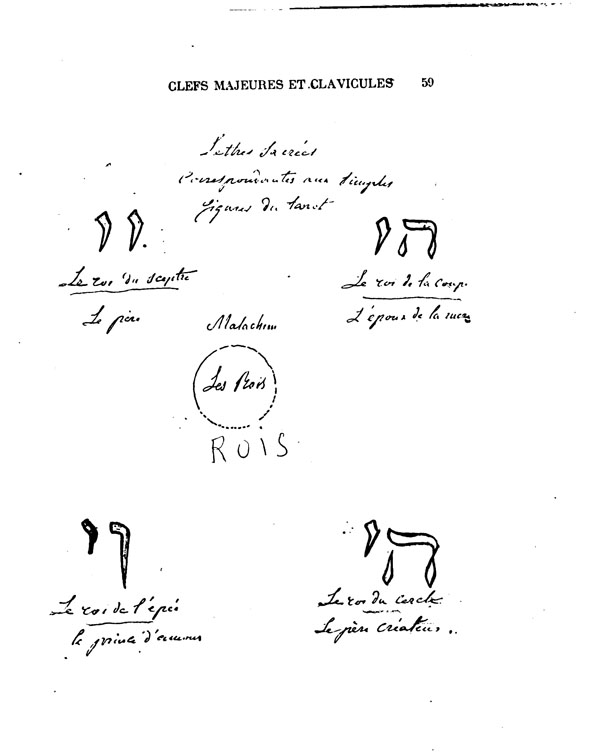 CLEFS MAJEURES ET CLAVICULES 59
Lettres Sacrées
Correspondantes aux simples
figures du tarot
יי
Le roi du sceptre
Le père
הי
Le roi de la coupe
L'époux de la mère
Malachim
Les Rois
ROIS
וי
Le roi de l'épée
le prince d'amour
הי
Le roi du cercle
Le père créateur